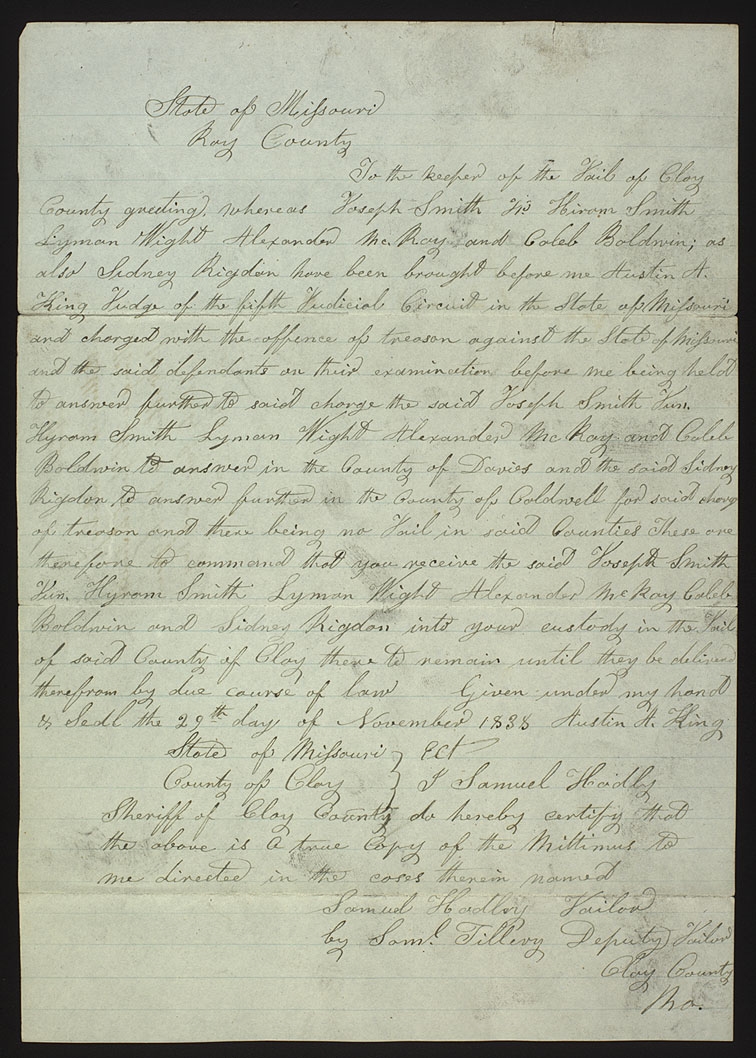 State of Missouri
Ray County
To the keeper of the Jail of Clay
County greeting, whereas Joseph Smith Jr Hiram Smith
Lyman Wight Alexander McRay and Caleb Boldwin; as
also Sidney Rigdon have been brought before me Austin A.
King Judge of the fifth Judicial Circuit in the State of Missouri
and charged with the offence of treason against the State of Missouri
and the said defendants on their examination before me being held
to answer further to said charge the said Joseph Smith Jun.
Hyrum Smith Lyman Wight Alexander McRay and Caleb
Boldwin to answer in the County of Davies and the said Sidney
Rigdon to answer further in the County of Caldwell for said charge
of treason and there being no Jail in said Counties These are
therefore to command that you receive the said Joseph Smith
Jun. Hyrum Smith Lyman Wight Alexander McRay Caleb
Boldwin and Sidney Rigdon into your custody in the Jail
of said County of Clay there to remain until they be delivered
therefrom by due course of law Given under my hand
& Seal the 29th day of November 1838 Austin A. King
State of Missouri } Ect
County of Clay } I Samuel Hadly
Sheriff of Clay County do hereby certify that
the above is a true Copy of the Mittimus to
me directed in the cases therein named
Samuel Hadley Jailor
by Saml. Tillery Deputy Jailor
Clay County
Mo.